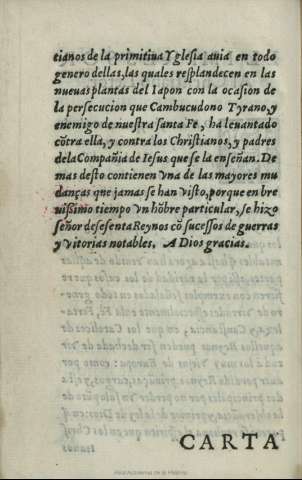 tianos de la primitiua Yglesia auia en todo
genero dellas, las quales resplandecen en las
nueuas plantas del Iapon con la ocasion de
la persecucion que Cambucudono Tyrano, y
enemigo de nuestra santa Fe, ha leuantado
cõtra ella, y contra los Christianos, y padres
dela Compañia de Iesus que se la enseñan. De
mas desto contienen vna de las mayores mu
danças que jamas se han visto, porque en bre
uissimo tiempo vn hõbre particular, se hizo
señor de sesenta Reynos cõ sucessos de guerras
y vitorias notables. A Dios gracias.
CARTA
Real Academia de la Historia